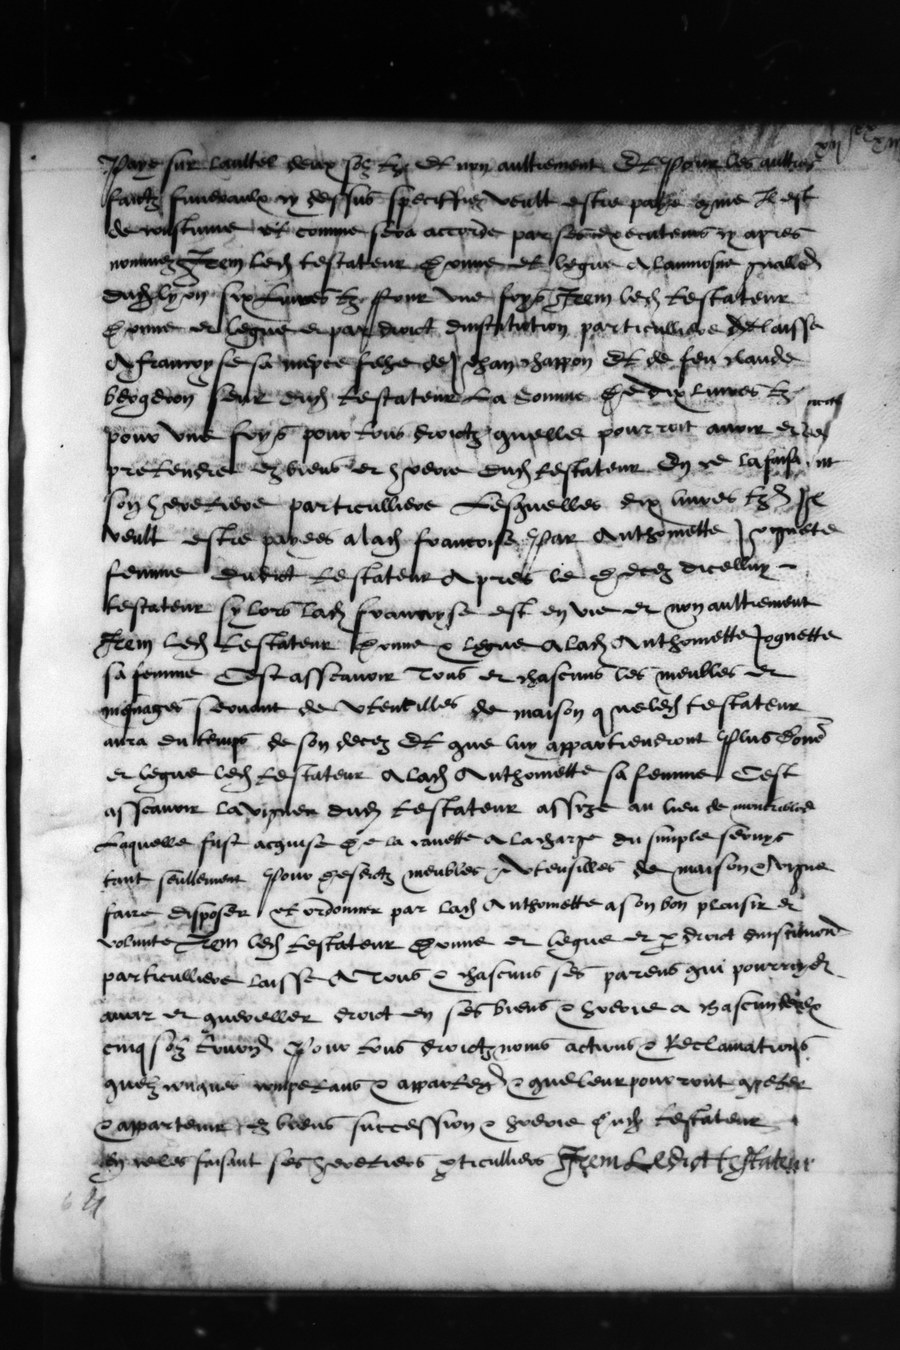 Paye sur laultel deux solz tz et non aultrement Et Pour les aultres
faictz funeraulx cy dessus speciffiez veult estre paye comme Il est
de coustume et comme sera accorde par ses executeurs cy apres
nommez Item led testateur donne et legue A laumosne
dud lyon six livres tz pour une foys Item led testateur
donne et legue et par droict dinstitution particulliere delaisse
A francoyse sa niepce fille de Jehan chappon Et de feu claude
seur dud testateur La somme de dix livres tz
pour une foys pour tous droictz quelle pourroit avoir et
pretendre es biens et hoirie dud testateur En ce la faisant
son heretiere particulliere Lesquelles dix livres tz Il
veult estre payees a lad francoise Par Anthomette Joguette
femme dudict testateur Apres le decez dicelluy
testateur sy lors lad francoyse est en vie et non aultrement
Item led testateur donne & legue A lad Anthomette Joguette
sa femme Cest asscavoir Tous et chascuns les meubles et
mesnages servant de utencilles de maison que led testateur
aura du temps de son decez Et que luy appartiendront Plus donne
et legue led testateur A lad Anthomette sa femme Cest
asscavoir la vigne dud testateur assize au lieu de
Laquelle fust acquise de la A la charge du simple servys
tant seullement Pour desdictz meubles Utensilles de maison & vigne
faire disposer et ordonner par lad Anthomette a son bon plaisir et
volunte Item led testateur donne et legue et p droict dinstitution
particulliere laisse A Tous & chascuns ses parens qui pourroyent
avoir et quereller droict en ses biens & hoirie a chascun deulx
cinq solz tournois Pour tous droictz noms actions & Reclamations
quelzconques competans & apparten & que leur pourront competer
& appartenir es biens succession & hoirie dud testateur
En ce les faisant ses heretiers pticulliers Item Ledict testateur